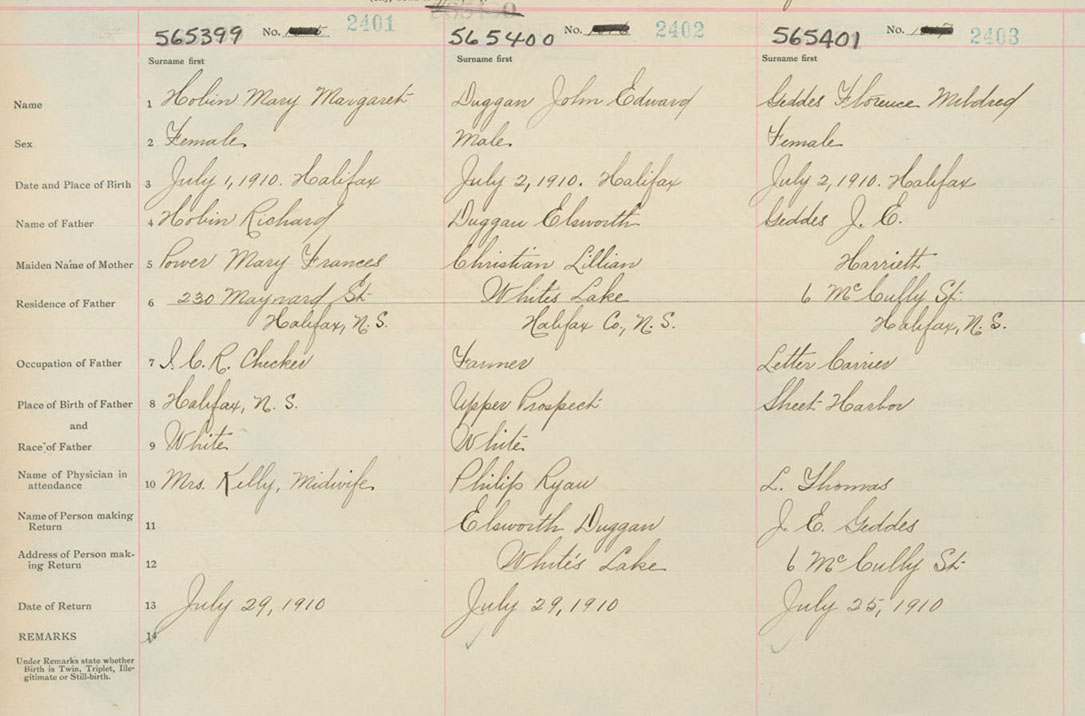 565399 No. 2401 565400 No. 2402 565401 No. 2403
Surname first Surname first Surname first
Name 1 Hobin Mary Margaret Duggan John Edward Geddes Florence Mildred
Sex 2 Female. Male. Female
Date and Place of Birth 3 July 1, 1910. Halifax July 2, 1910. Halifax July 2, 1910. Halifax
Name of Father 4 Hobin Richard Duggan Elsworth Geddes J. E.
Maiden Name of Mother 5 Power Mary Frances Christian Lillian Harrieth
Residence of Father 6 230 Maynard St. Whites Lake 6 McCully St.
Halifax, N.S. Halifax Co., N.S. Halifax, N.S.
Occupation of Father 7 I.C.R. Checker Farmer Letter Carrier
Place of Birth of Father 8 Halifax, N.S. Upper Prospect Sheet Harbor
and
Race of Father 9 White White
Name of Physician in
attendance 10 Mrs. Kelly, Midwife. Philip Ryan L. Thomas
Name of Person making
Return 11 Elsworth Duggan J. E. Geddes
Address of Person mak-
ing Return 12 White's Lake 6 McCully St.
Date of Return 13 July 29, 1910 July 29, 1910 July 25, 1910
REMARKS 14
Under Remarks state whether
Birth is Twin, Triplet, Ille-
gitimate or Still-birth.